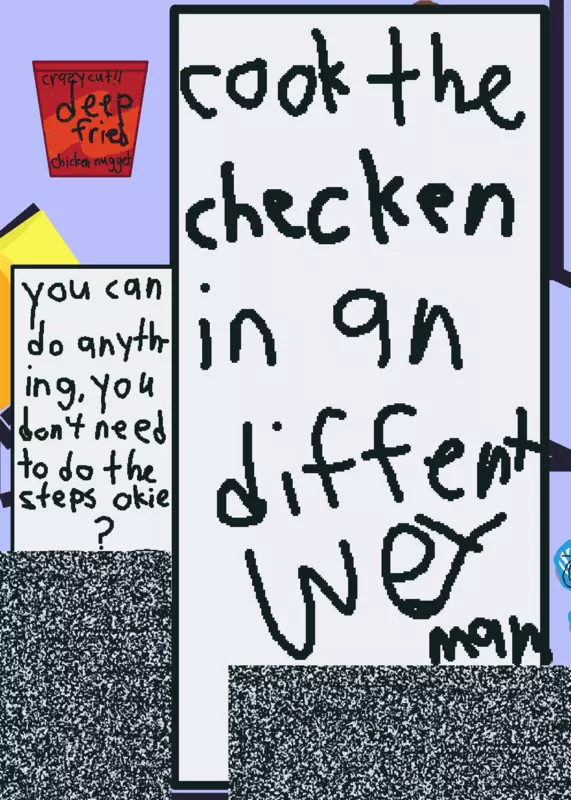 crazycut!!
deep
fried
chicken nugget
you can
do anyth
ing, you
don't need
to do the
steps okie
?
cook the
checken
in an
diffent
wey
man